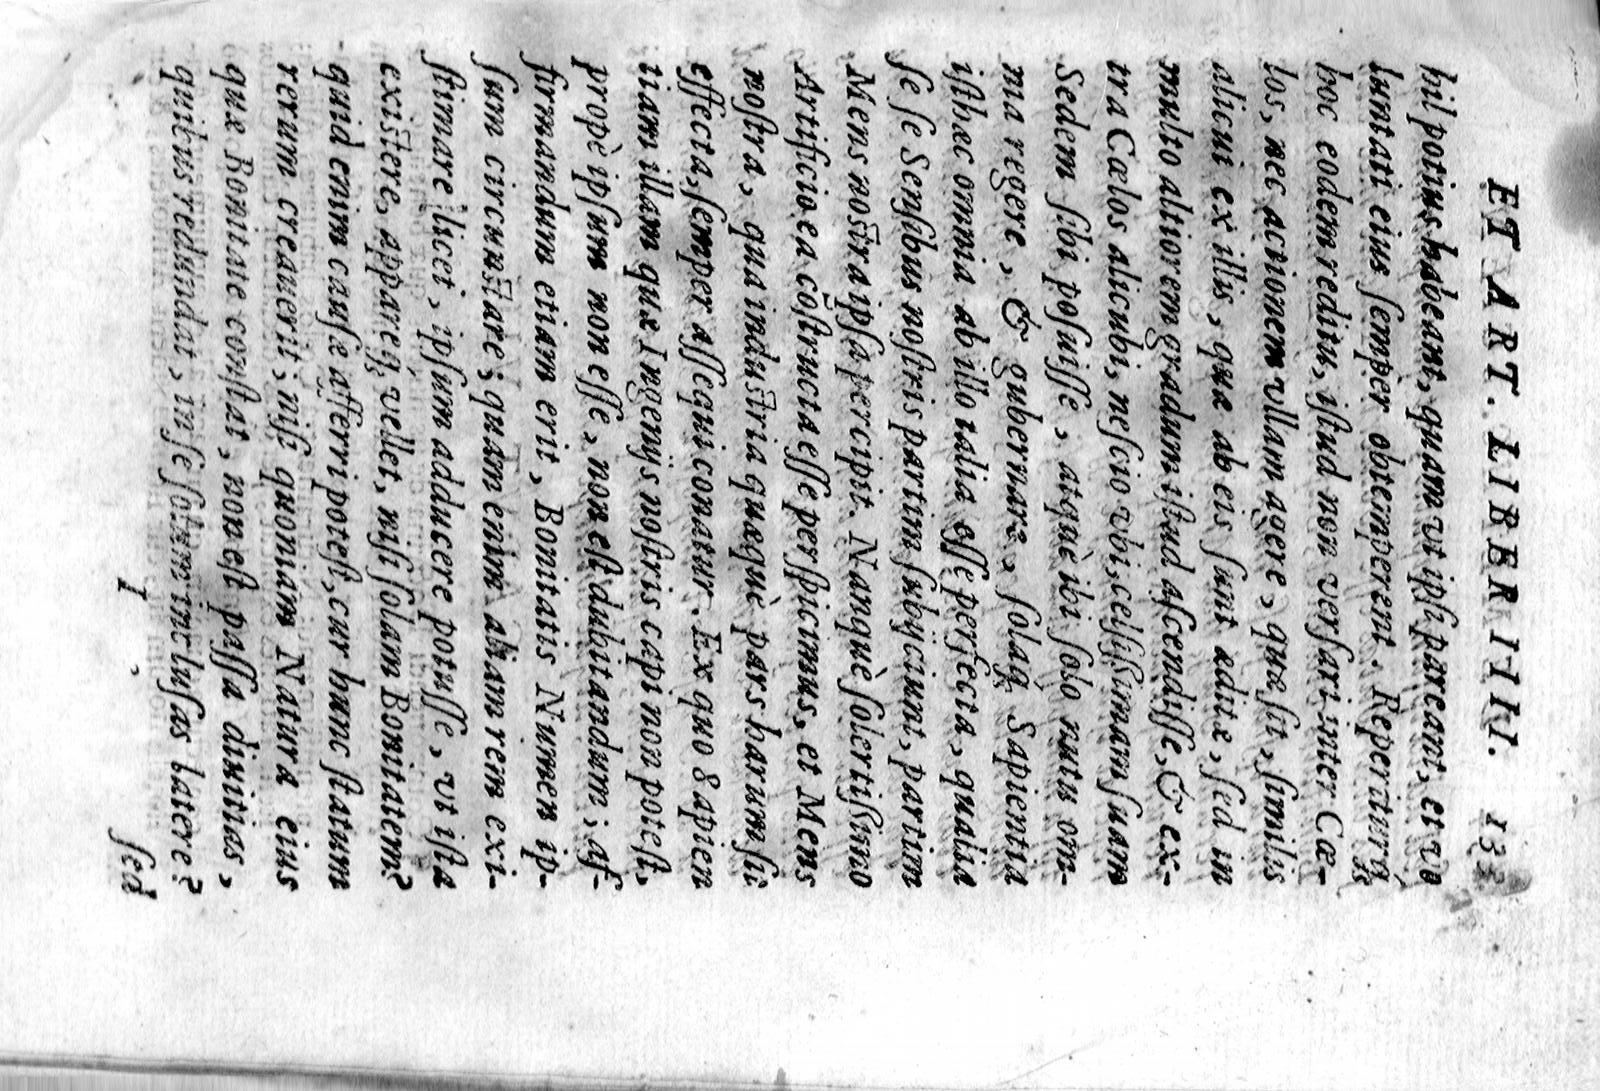 ET ART. LIBER IIII. 133
hil potius habeant, quam vt ipsi pareant, et vo
luntati eius semper obtemperent. Reperaturq́;
hoc eodem reditu, istud non versari inter Cæ-
los, nec actionem vllam agere, quæ sit, similis
alicui ex illis, quæ ab eis sunt æditæ, sed in
multo altiorem gradum istud ascendisse, & ex-
tra Cœlos alicubi, nescio vbi, celsissimam suam
Sedem sibi posuisse, atquè ibi solo nutu om-
nia regere, & gubernare, solaq́; Sapientia
isthæc omnia ab illo talia esse perfecta, qualia
se se Sensibus nostris partim subijciunt, partim
Mens nostra ipsa percipit. Nanquè solertissimo
Artificio ea cõstructa esse perspicimus, et Mens
nostra, qua industria quæquè pars harum sit
effecta, semper assequi conatur. Ex quo Sapien
tiam illam quæ Ingenijs nostris capi non potest,
propè ipsum non esse, non est dubitandum; af-
firmandum etiam erit, Bonitatis Numen ip-
sum circunstare; quam enim aliam rem exi-
stimare licet, ipsum adducere potuisse, vt ista
existere, apparereq́; vellet, nisi solam Bonitatem?
quid enim causæ afferri potest, cur hunc statum
rerum creauerit, nisi quoniam Natura eius
quæ Bonitate constat, non est passa diuitias,
quibus redundat, in se solum inclusas latere?
I sed